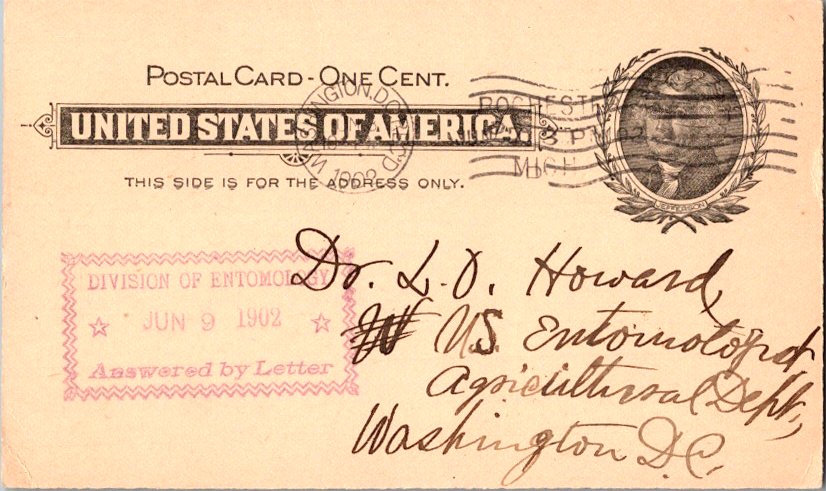 POSTAL CARD - ONE CENT.
UNITED STATES OF AMERICA.
THIS SIDE IS FOR THE ADDRESS ONLY.
WASHINGTON, D.C.
1902
ROCHESTER
MICH
JEFFERSON
DIVISION OF ENTOMOLOGY
☆ JUN 9 1902 ☆
Answered by Letter
Dr. L. O. Howard,
U.S. Entomologist,
Agricultural Dept.,
Washington D.C.